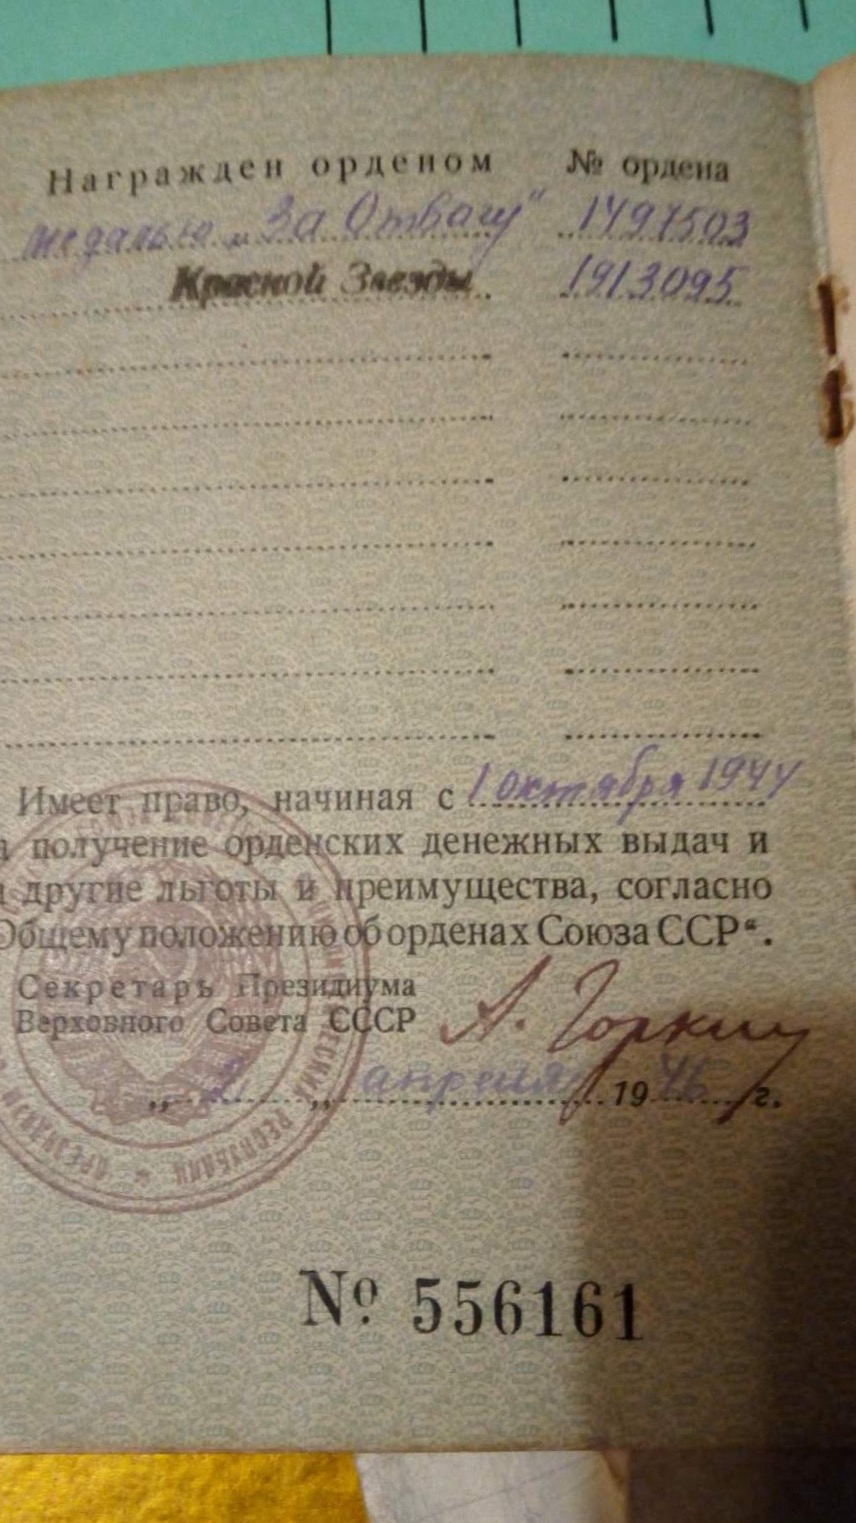 Награжден орденом № ордена
медалью „За Отвагу" 1491503
Красной Звезды 1913095
Имеет право, начиная с 1 октября 1944
получение орденских денежных выдач и
другие льготы и преимущества, согласно
Общему положению об орденах Союза ССР“.
Секретарь Президиума
Верховного Совета СССР А. Горкин
„ 2 „ апреля 1946 г.
№ 556161